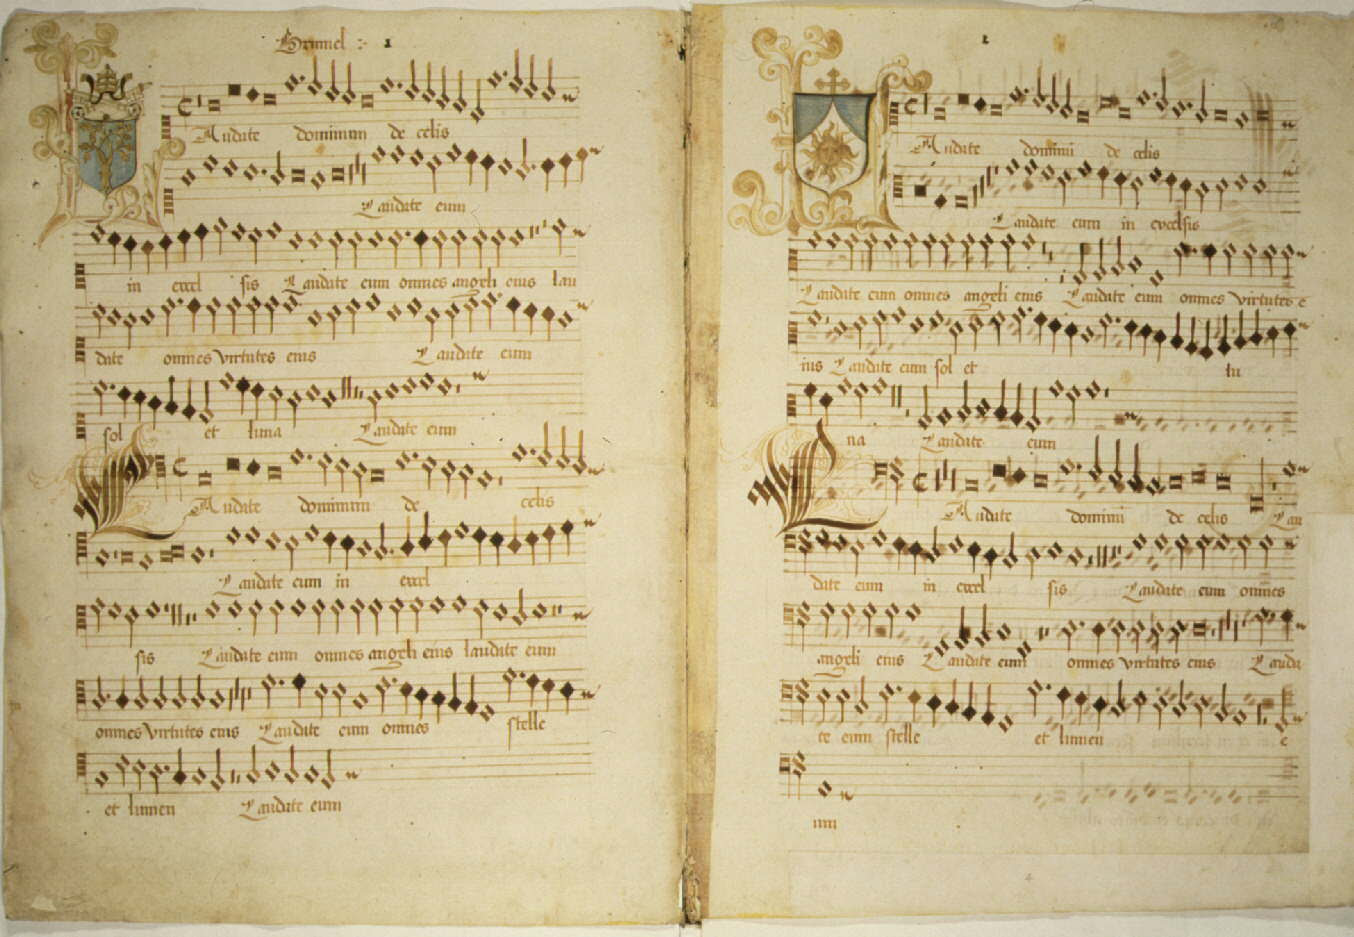 Brumel 1
Laudate dominum de celis
Laudate eum
in excel sis Laudate eum omnes angeli eius lau
date omnes virtutes eius Laudate eum
sol et luna Laudate eum
Laudate dominum de celis
Laudate eum in excel
sis Laudate eum omnes angeli eius laudate eum
omnes virtutes eius Laudate eum omnes stelle
et lumen Laudate eum
1
Laudate dominū de celis
Laudate eum in excelsis
Laudate eum omnes angeli eius Laudate eum omnes virtutes e
ius Laudate eum sol et lu
na Laudate eum
Laudate dominū de celis Lau
date eum in excel sis Laudate eum omnes
angeli eius Laudate eum omnes virtutes eius Lauda
te eum stelle et lumen e
um